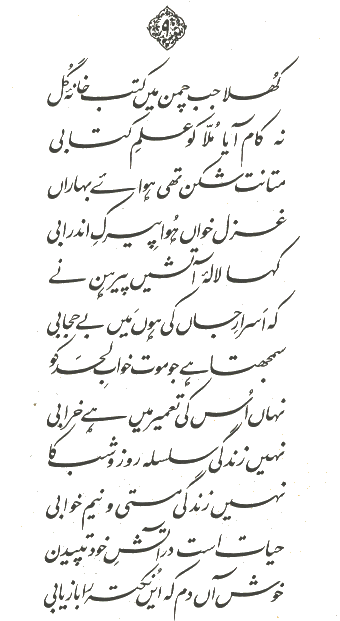 ۹
کھلا جب چمن میں کتب خانۂ گل
نہ کام آیا ملّا کو علمِ کتابی
متانت شکن تھی ہوائے بہاراں
غزل خواں ہُوا پیرکِ اندرابی
کہا لالۂ آتشیں پیرہن نے
کہ اَسرارِ جاں کی ہوں مَیں بے حجابی
سمجھتا ہے جو موت خوابِ لحَد کو
نہاں اُس کی تعمیر میں ہے خرابی
نہیں زندگی سلسلہ روز و شب کا
نہیں زندگی مستی و نیم خوابی
حیات است در آتشِ خود تپیدن
خوش آں دم کہ ایں نکتہ را بازیابی